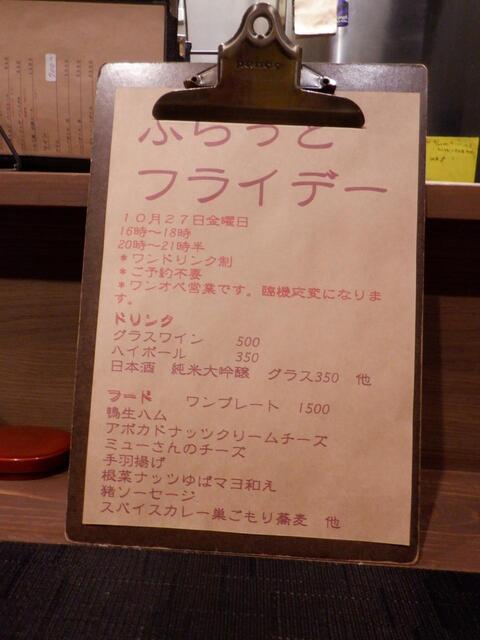 penco
ふらっと
フライデー
10月27日金曜日
16時～18時
20時～21時半
＊ワンドリンク制
＊ご予約不要
＊ワンオペ営業です。臨機応変になりま
す。
ドリンク
グラスワイン 500
ハイボール 350
日本酒 純米大吟醸 グラス350 他
フード ワンプレート 1500
鴨生ハム
アボカドナッツクリームチーズ
ミューさんのチーズ
手羽揚げ
根菜ナッツゆばマヨ和え
猪ソーセージ
スパイスカレー巣ごもり蕎麦 他